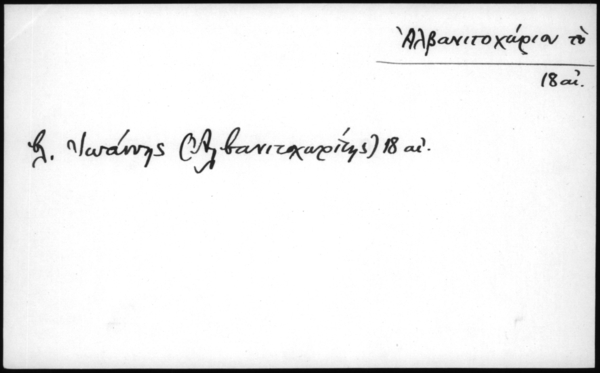 Ἀλβανιτοχώριον τὸ
18 αἰ.
βλ. Ἰωάννης (Ἀλβανιτοχωρίτης) 18 αἰ.